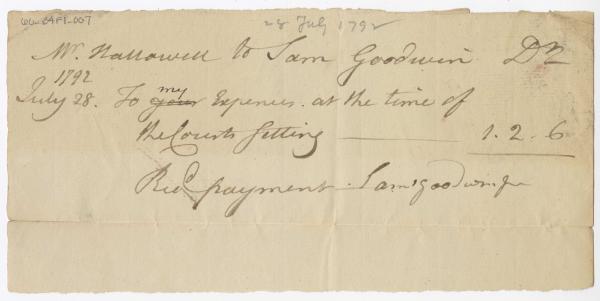 28 July 1792
Mr. Hallowell to Sam Goodwin Dr
1792
July 28. To your my Expences at the time of
the Courts Setting 1.2.6
Recd payment Saml Goodwin Jr